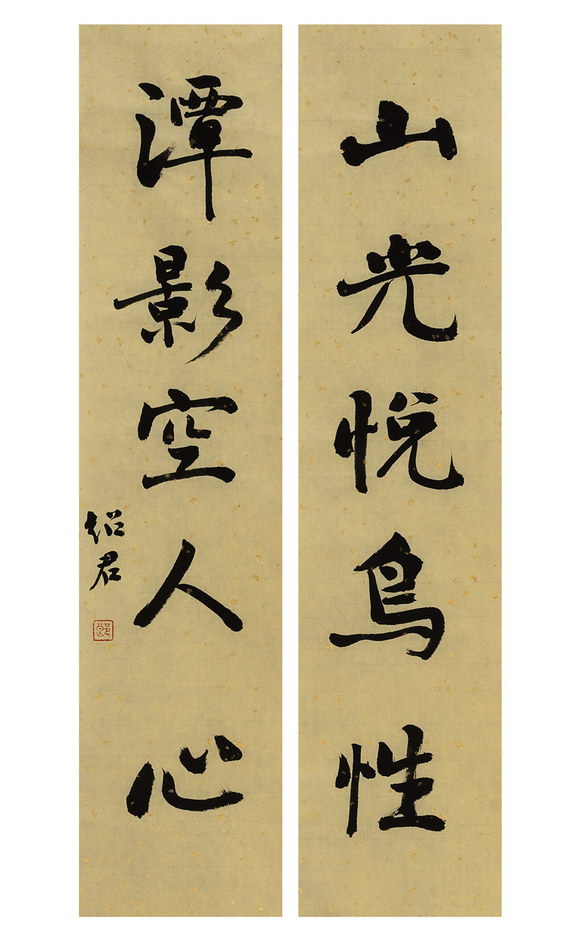 山光悦鸟性
潭影空人心
绍君